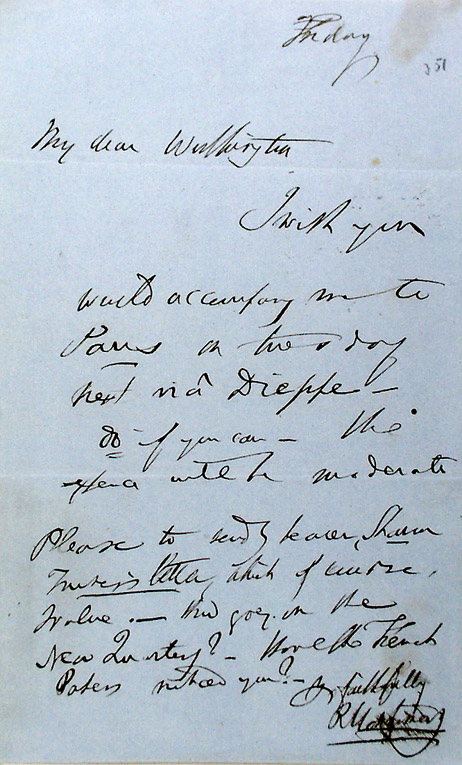 Friday
351
My dear Washington
I wish you
would accompany me to
Paris on
next viâ Dieppe —
do if you can — The
expence will be moderate
Please to send by bearer, Sharon
Turner's letter, which of course,
I value. — How goes on the
New Quarterly? — Have the French
Papers noticed you? —
Yrs faithfully